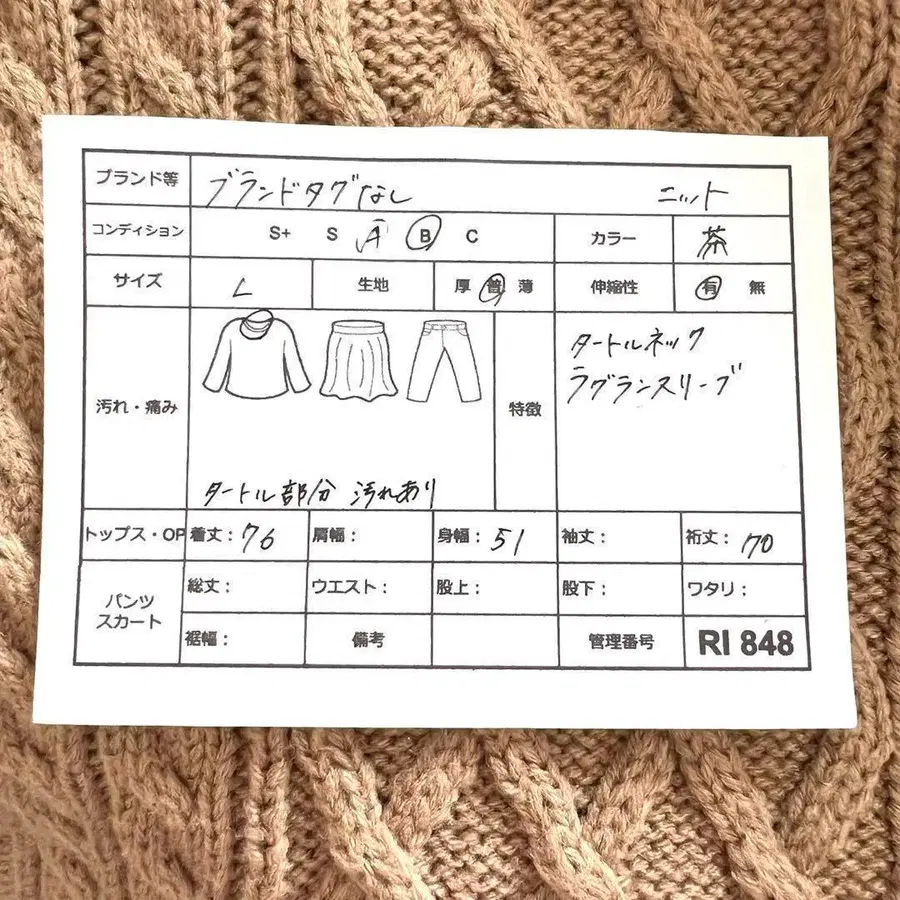 ブランド等 ブランドタグなし ニット
コンディション S+ S A B C カラー 茶
サイズ L 生地 厚 普 薄 伸縮性 有 無
汚れ・痛み 特徴 タートルネック
ラグランスリーブ
タートル部分 汚れあり
トップス・OP 着丈：76 肩幅： 身幅：51 袖丈： 裄丈：70
パンツ
スカート
総丈： ウエスト： 股上： 股下： ワタリ：
裾幅： 備考 管理番号 RI 848